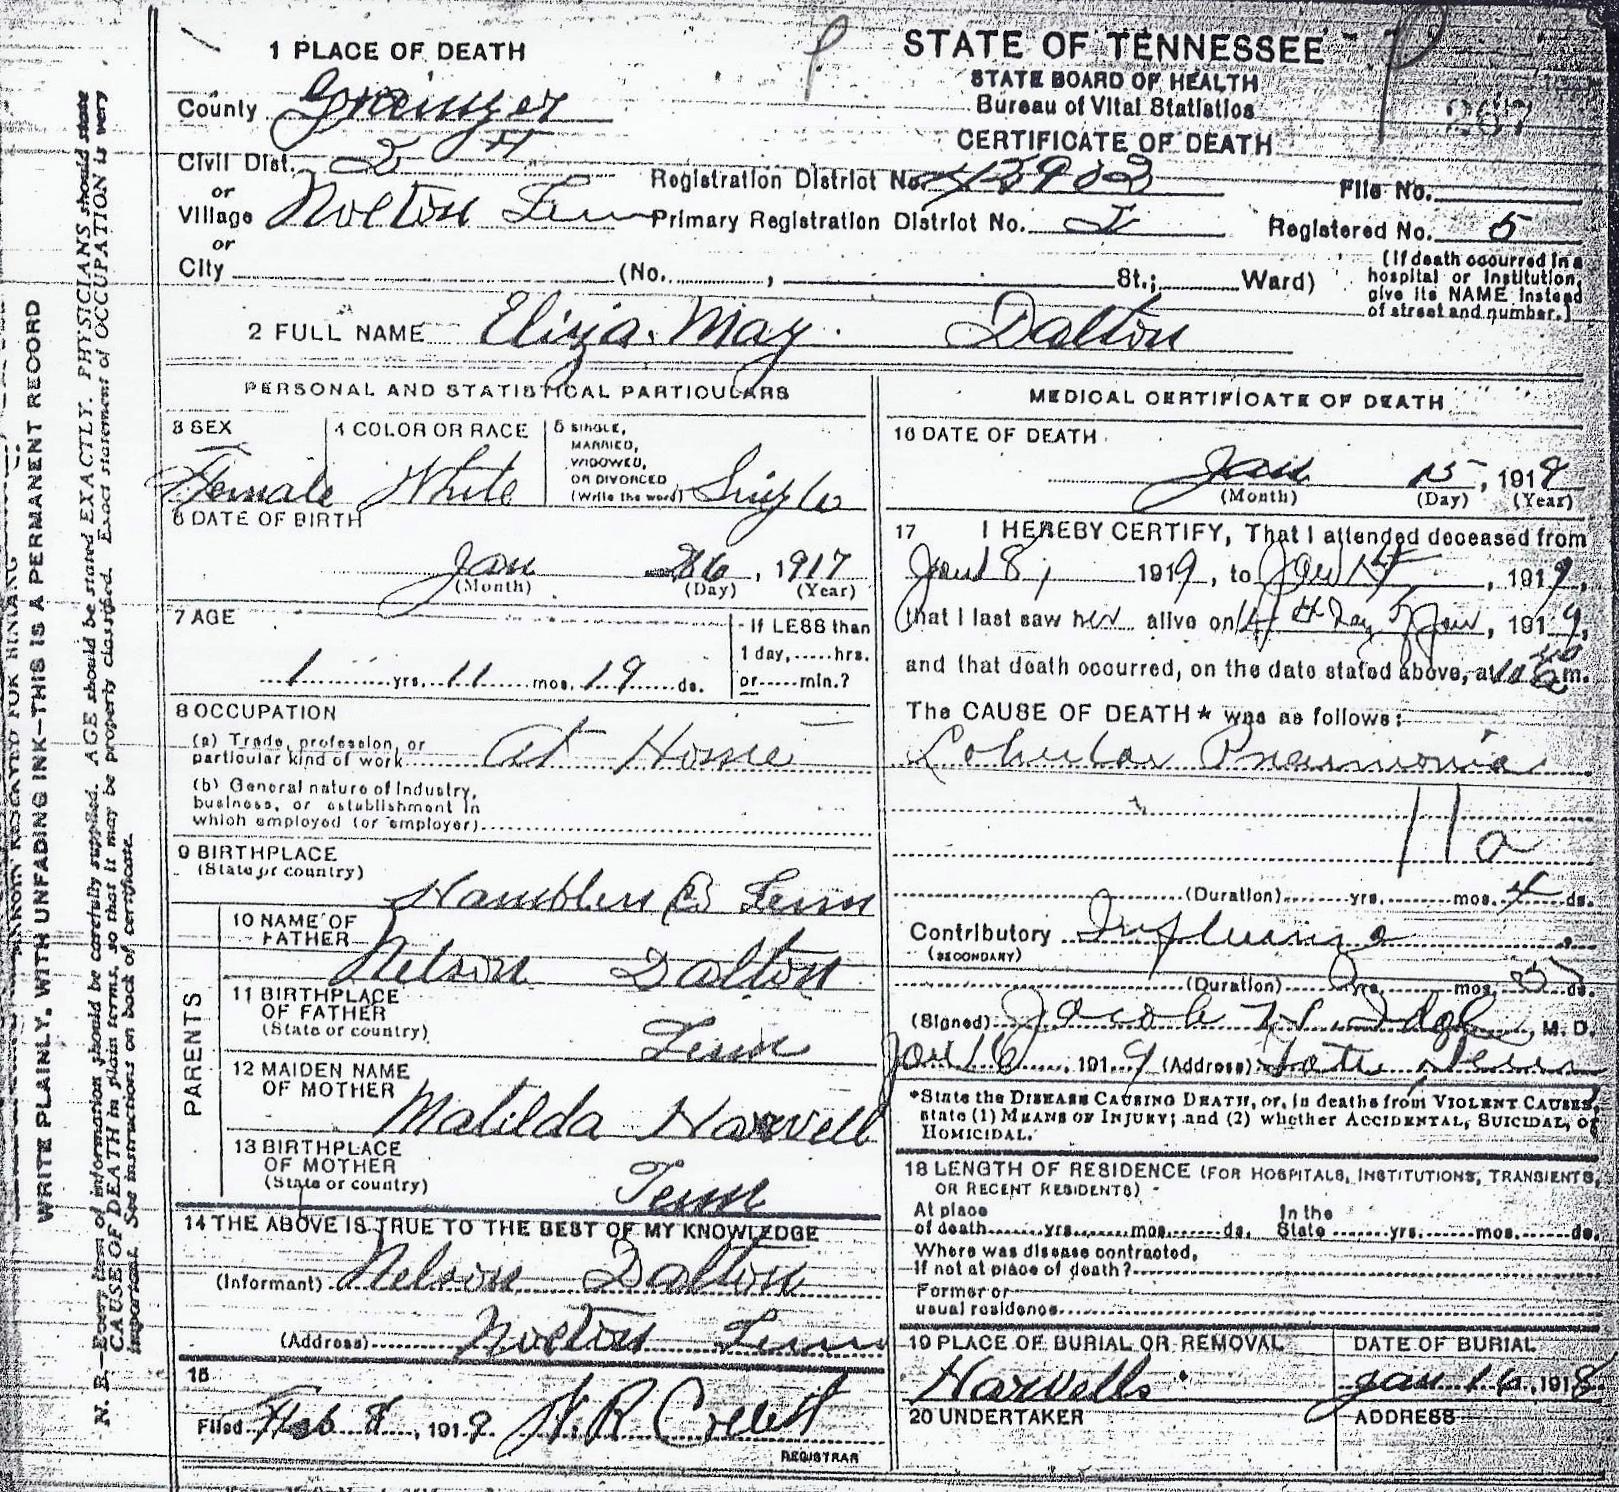 1 PLACE OF DEATH
County Grainger
Civil Dist. 2
or
Village Nolton Tenn
or
City (No. , St.; Ward)
STATE OF TENNESSEE
STATE BOARD OF HEALTH
Bureau of Vital Statistics
CERTIFICATE OF DEATH
Registration District No.
File No.
Primary Registration District No.
Registered No. 5
(If death occurred in a
hospital or institution,
give its NAME instead
of street and number.)
2 FULL NAME Eliza. May Dalton
PERSONAL AND STATISTICAL PARTICULARS
3 SEX
Female
4 COLOR OR RACE
White
5 SINGLE,
MARRIED,
WIDOWED,
OR DIVORCED
(Write the word) Single
6 DATE OF BIRTH
Jan 26, 1917
(Month) (Day) (Year)
7 AGE
1 yrs. 11 mos. 19 ds.
If LESS than
1 day, ...... hrs.
or ...... min.?
8 OCCUPATION
(a) Trade, profession, or
particular kind of work At Home
(b) General nature of industry,
business, or establishment in
which employed (or employer)
9 BIRTHPLACE
(State or country)
Hamblen Co Tenn
PARENTS
10 NAME OF
FATHER
Nelson Dalton
11 BIRTHPLACE
OF FATHER
(State or country)
Tenn
12 MAIDEN NAME
OF MOTHER
Matilda Harvell
13 BIRTHPLACE
OF MOTHER
(State or country)
Tenn
14 THE ABOVE IS TRUE TO THE BEST OF MY KNOWLEDGE
(Informant) Nelson Dalton
(Address) Nolton Tenn
15
Filed Feb 8, 1919
REGISTRAR
MEDICAL CERTIFICATE OF DEATH
16 DATE OF DEATH
Jan 15, 1919
(Month) (Day) (Year)
17 I HEREBY CERTIFY, That I attended deceased from
Jan 8, 1919, to Jan 14, 1919,
that I last saw her alive on 14th Day of Jan, 1919,
and that death occurred, on the date stated above, at 10 40 a m.
The CAUSE OF DEATH* was as follows:
Lobular Pneumonia
11 a
(Duration) yrs. mos. 4 ds.
Contributory Influenza
(SECONDARY)
(Duration) yrs. mos. ds.
(Signed) Jacob , M. D.
Jan 16, 1919 (Address) Tate Tenn
*State the DISEASE CAUSING DEATH, or, in deaths from VIOLENT CAUSES,
state (1) MEANS OF INJURY; and (2) whether ACCIDENTAL, SUICIDAL, or
HOMICIDAL.
18 LENGTH OF RESIDENCE (FOR HOSPITALS, INSTITUTIONS, TRANSIENTS,
OR RECENT RESIDENTS)
At place
of death ...... yrs. ...... mos. ...... ds.
In the
State ...... yrs. ...... mos. ...... ds.
Where was disease contracted,
If not at place of death?
Former or
usual residence
19 PLACE OF BURIAL OR REMOVAL
Harvells
DATE OF BURIAL
Jan 16, 1918
20 UNDERTAKER
ADDRESS
WRITE PLAINLY, WITH UNFADING INK—THIS IS A PERMANENT RECORD
N. B.—Every item of information should be carefully supplied. AGE should be stated EXACTLY. PHYSICIANS should state
CAUSE OF DEATH in plain terms, so that it may be properly classified. Exact statement of OCCUPATION is very
important. See instructions on back of certificate.